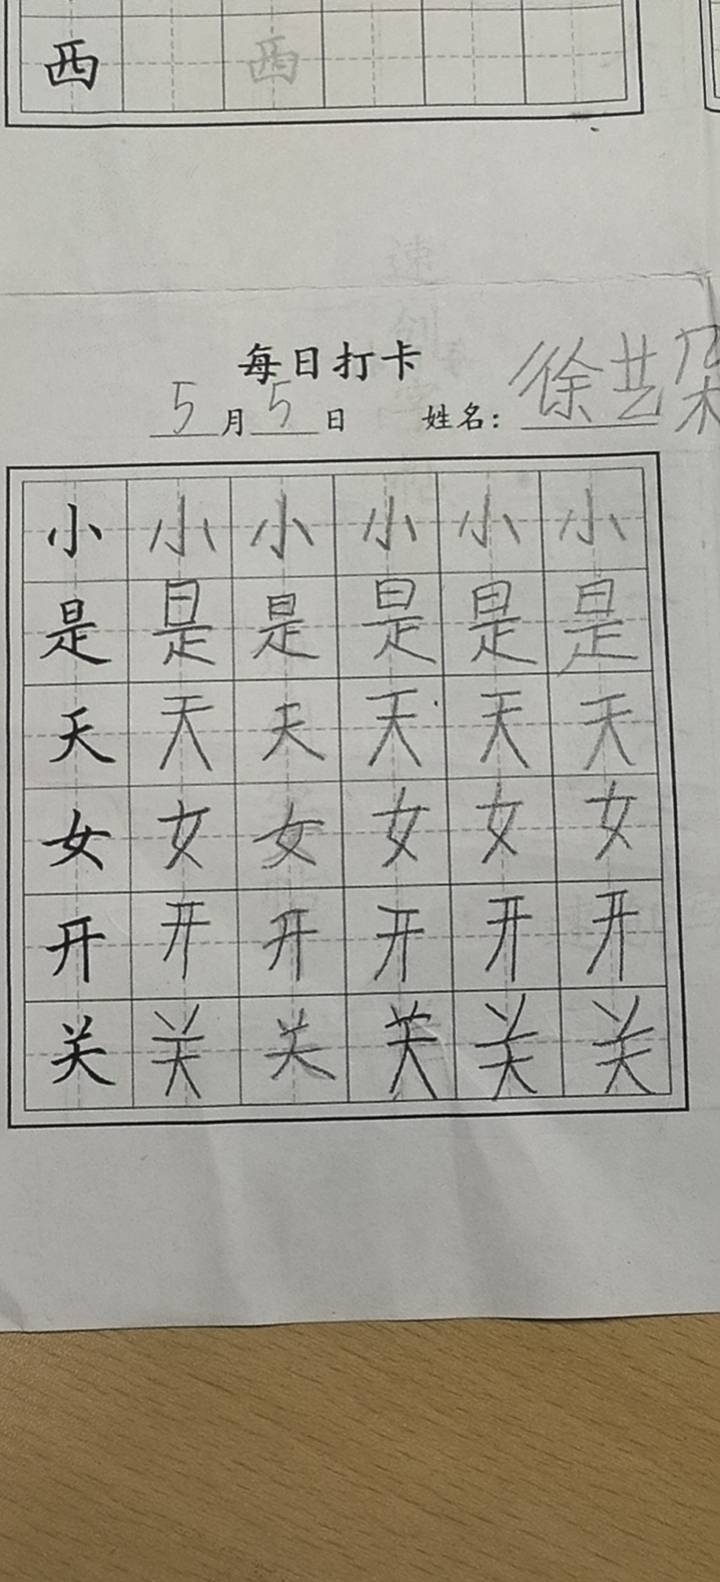 西 西
每日打卡
5月5日 姓名：徐艺朵
小 小 小 小 小 小
是 是 是 是 是 是
天 天 天 天 天 天
女 女 女 女 女 女
开 开 开 开 开 开
关 关 关 关 关 关